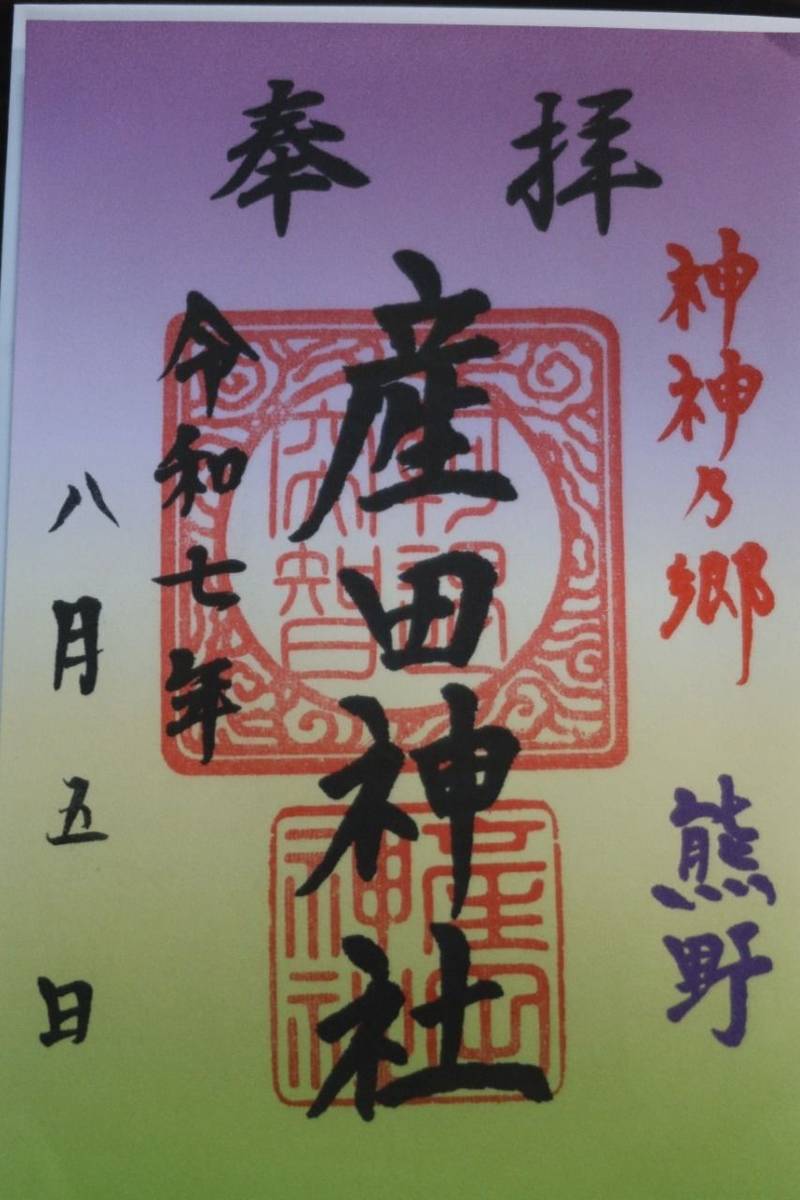 奉拝
神神乃郷 熊野
産田神社
令和七年
八月五日
産田
神社